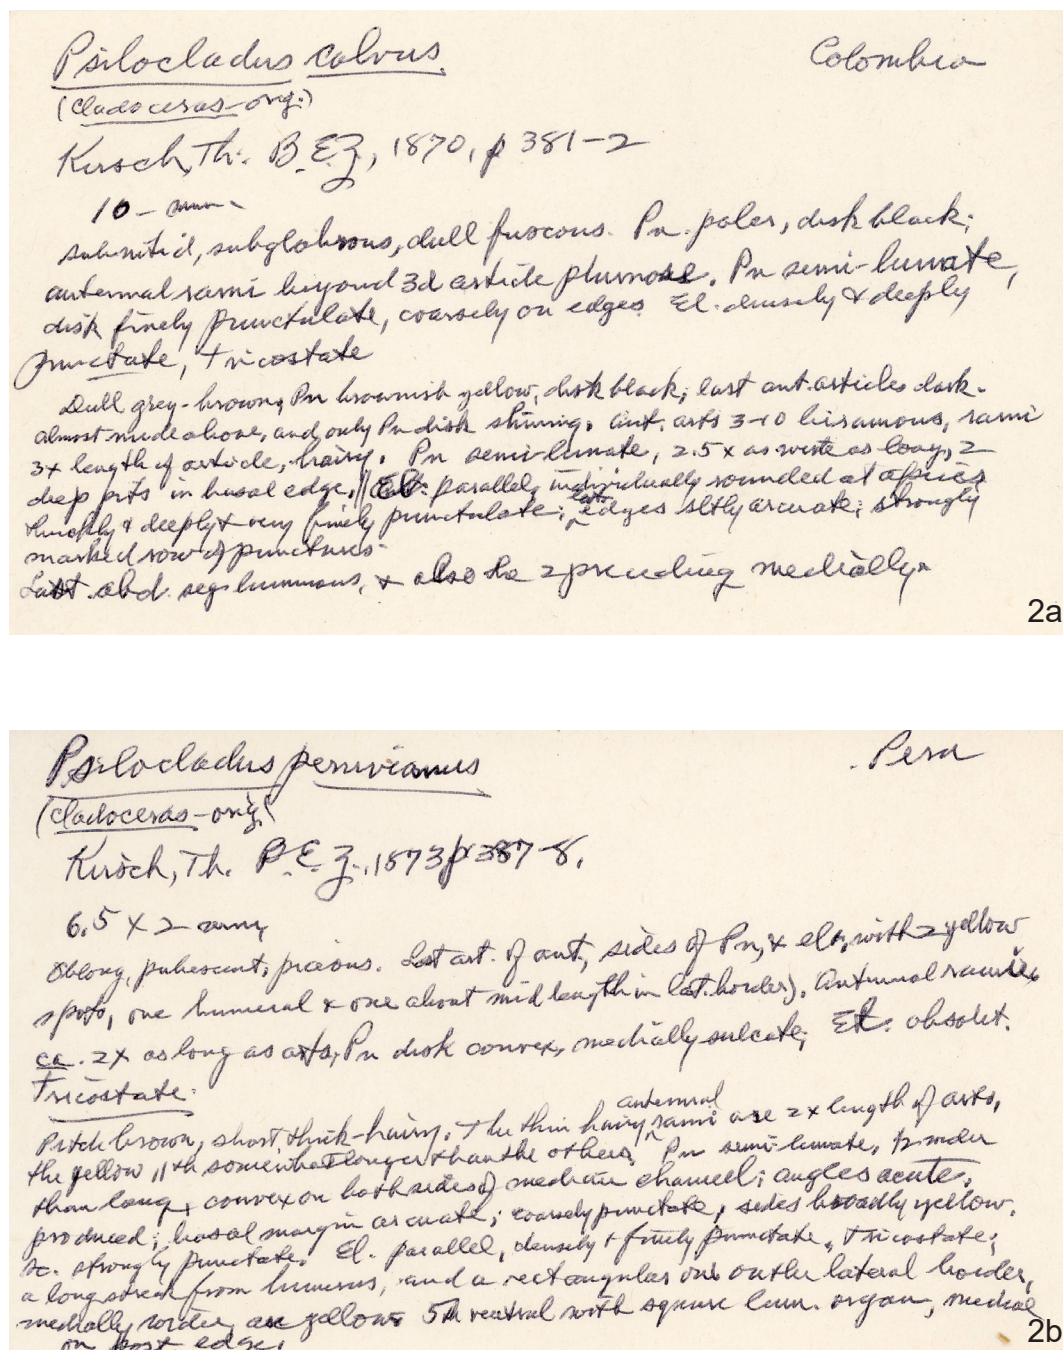 Psilocladus calvus Colombia
(Cladoceras-orig.)
Kirsch, Th. B.E.Z., 1870, p 381-2
10 - mm
subnitid, subglabrous, dull fuscous. Pn. paler, disk black;
antennal rami beyond 3d article plumose. Pn semi-lunate,
disk finely punctulate, coarsely on edges El. densely & deeply
punctate, tricostate
Dull grey-brown, Pn brownish yellow, disk black; last ant. articles dark.
almost nude above, and only Pn disk shining. Ant. arts 3-10 biramous, rami
3x length of article, hairy. Pn semi-lunate, 2.5x as wide as long, 2
deep pits in basal edge, // El. parallel, individually rounded at apices
thickly & deeply & very finely punctulate; lat. edges sltly arcuate; strongly
marked row of punctures.
Last abd. seg luminous, & also the 2 preceding medially.
2a
Psilocladus peruvianus Peru
(Cladoceras-orig.)
Kirsch, Th. B.E.Z., 1873 p 387-8.
6.5 x 2 mm
Oblong, pubescent, piceous. Last art. of ant., sides of Pn, & el., with 2 yellow
spots, one humeral & one about mid length in lat. border). Antennal ramii
ca. 2x as long as arts, Pn disk convex, medially sulcate; El. obsolet.
tricostate.
Pitch brown, short thick-hairy. The thin hairy antennal rami are 2x length of arts,
the yellow 11th somewhat longer than the others. Pn semi-lunate,
than long, convex on both sides of median channel; angles acute,
produced; basal margin arcuate; coarsely punctate, sides broadly yellow.
Sc. strongly punctate. El. parallel, densely & finely punctate, tricostate;
a long streak from humerus, and a rectangular one on the lateral border,
medially are yellow 5th ventral with square lum. organ, medial
on post edge.
2b